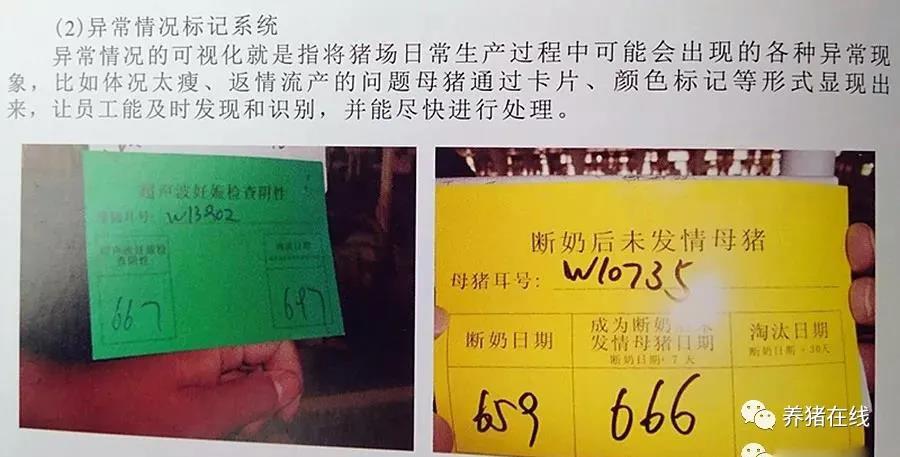 (2)异常情况标记系统
异常情况的可视化就是指将猪场日常生产过程中可能会出现的各种异常现
象，比如体况太瘦、返情流产的问题母猪通过卡片、颜色标记等形式显现出
来，让员工能及时发现和识别，并能尽快进行处理。
超声波妊娠检查阴性
母猪耳号: W13902
超声波妊娠检
查阴性
淘汰日期
667
697
断奶后未发情母猪
母猪耳号: W10735
断奶日期
成为断奶后未
发情母猪日期
断奶日期+7天
淘汰日期
断奶日期+30天
659
666
养猪在线